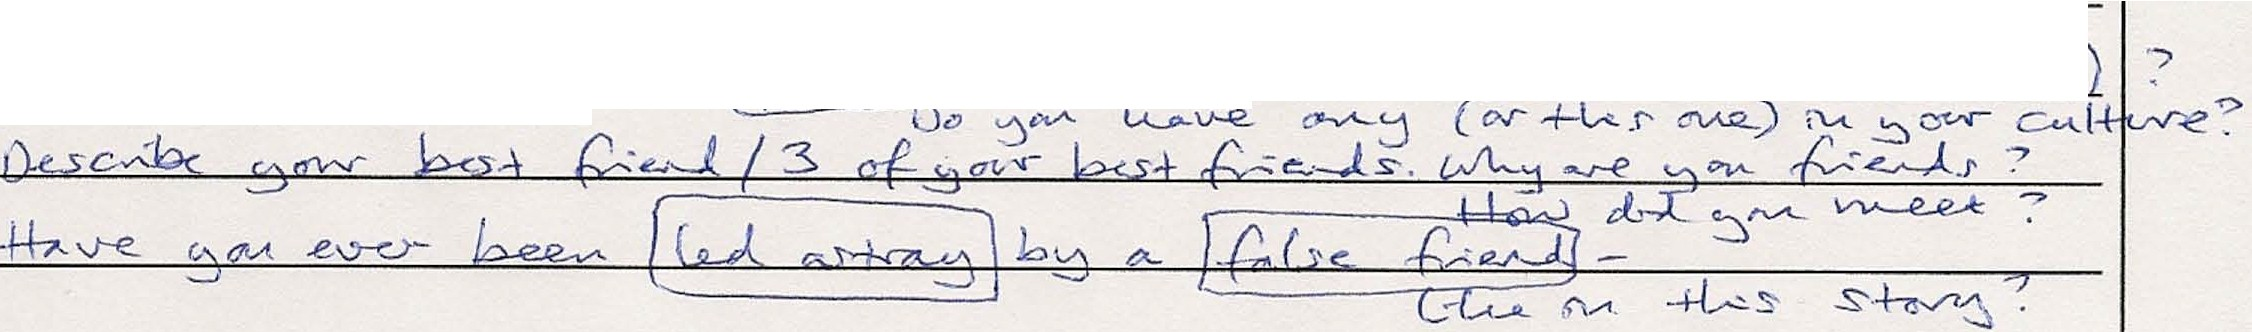 ) ?
Do you have any (or this one) in your culture?
Describe your best friend / 3 of your best friends. Why are you friends?
How did you meet?
Have you ever been led astray by a false friend –
in this story?